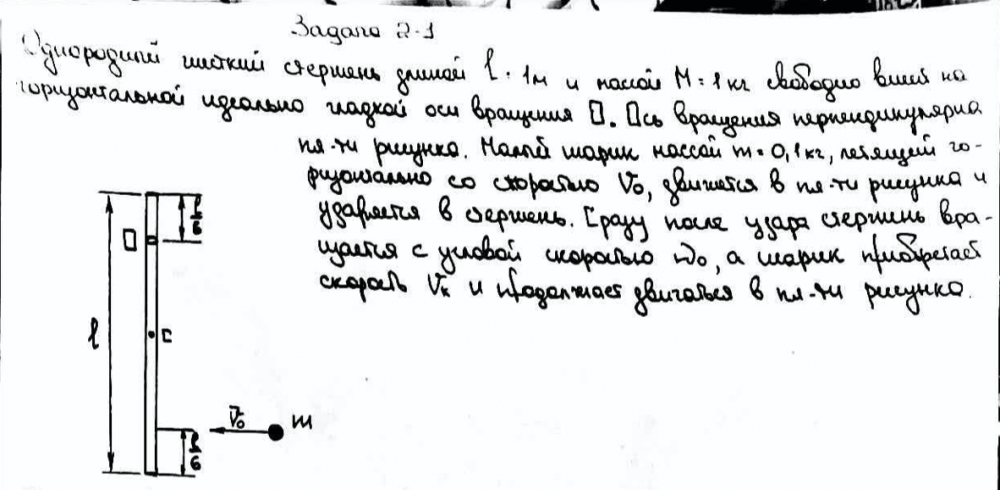 Задача 2-1
Однородный жесткий стержень длиной l = 1м и массой M = 1 кг свободно висит на
горизонтальной идеально гладкой оси вращения О. Ось вращения перпендикулярна
пл-ти рисунка. Малый шарик массой m = 0,1 кг, летящий го-
ризонтально со скоростью V₀, движется в пл-ти рисунка и
ударяется в стержень. Сразу после удара стержень вра-
щается с угловой скоростью ω₀, а шарик приобретает
скорость Vк и продолжает двигаться в пл-ти рисунка.
l/6
О
l
C
V₀ m
l/6